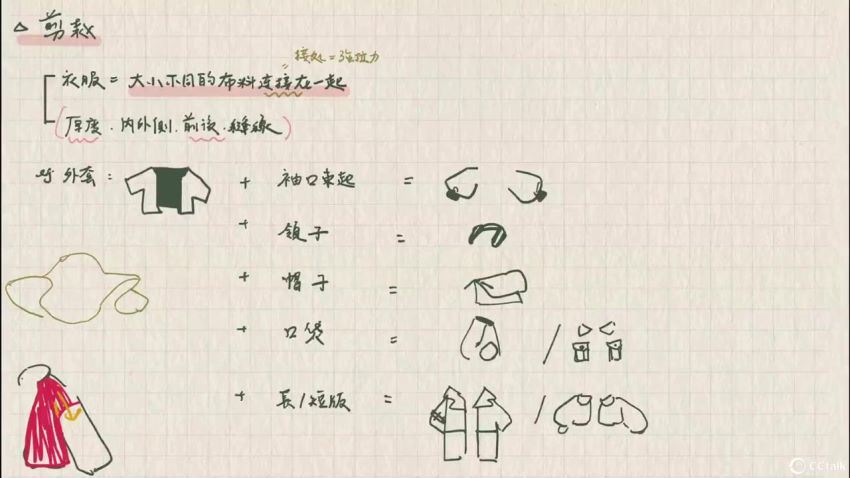 △ 剪裁
接处=强拉力
衣服 = 大小不同的布料连接在一起
(厚度.内外侧.前後.缝线)
eg 外套:
+ 袖口束起 =
+ 领子 =
+ 帽子 =
+ 口袋 =
+ 長/短版 =
CCtalk